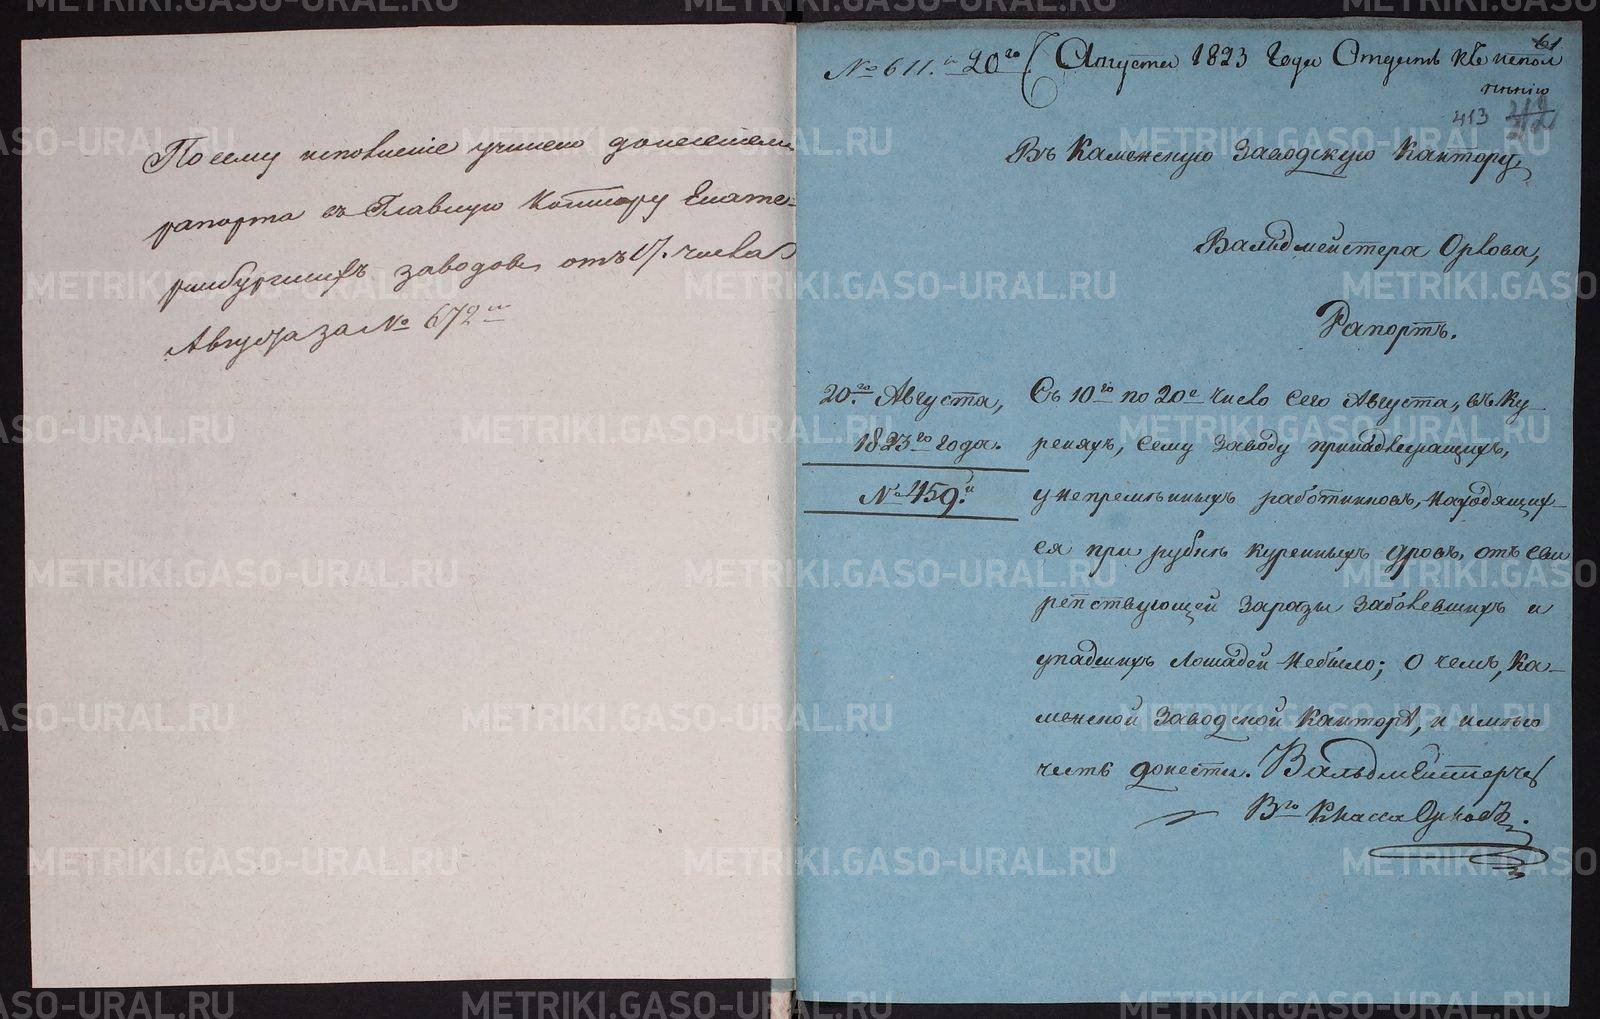 По сему исполнение учинено донесением
рапорта въ Главную Контору Екате-
ринбургскихъ заводовъ отъ 17. числа
Августа за № 672м
61
№ 611.й 20го Августа 1823 Года Отдать къ испол
нѣнію
413 212
Въ Каменскую Заводскую Кантору,
Вальдмейстера Орлова,
Рапортъ.
20го Августа,
1823го Года.
№ 459.й
Съ 10го по 20е число Сего Августа, въ Ку-
реняхъ, Сему Заводу принадлежащихъ,
у непремѣнныхъ работниковъ, находящих-
ся при рубкѣ куренныхъ дровъ, отъ сви
репствующей Заразы Заболевшихъ и
упадшихъ Лошадей небыло; О чемъ, Ка-
менской Заводской Канторѣ, и имѣю
честь донести. Вальдмейстеръ
Вго Класса Орловъ.
METRIKI.GASO-URAL.RU